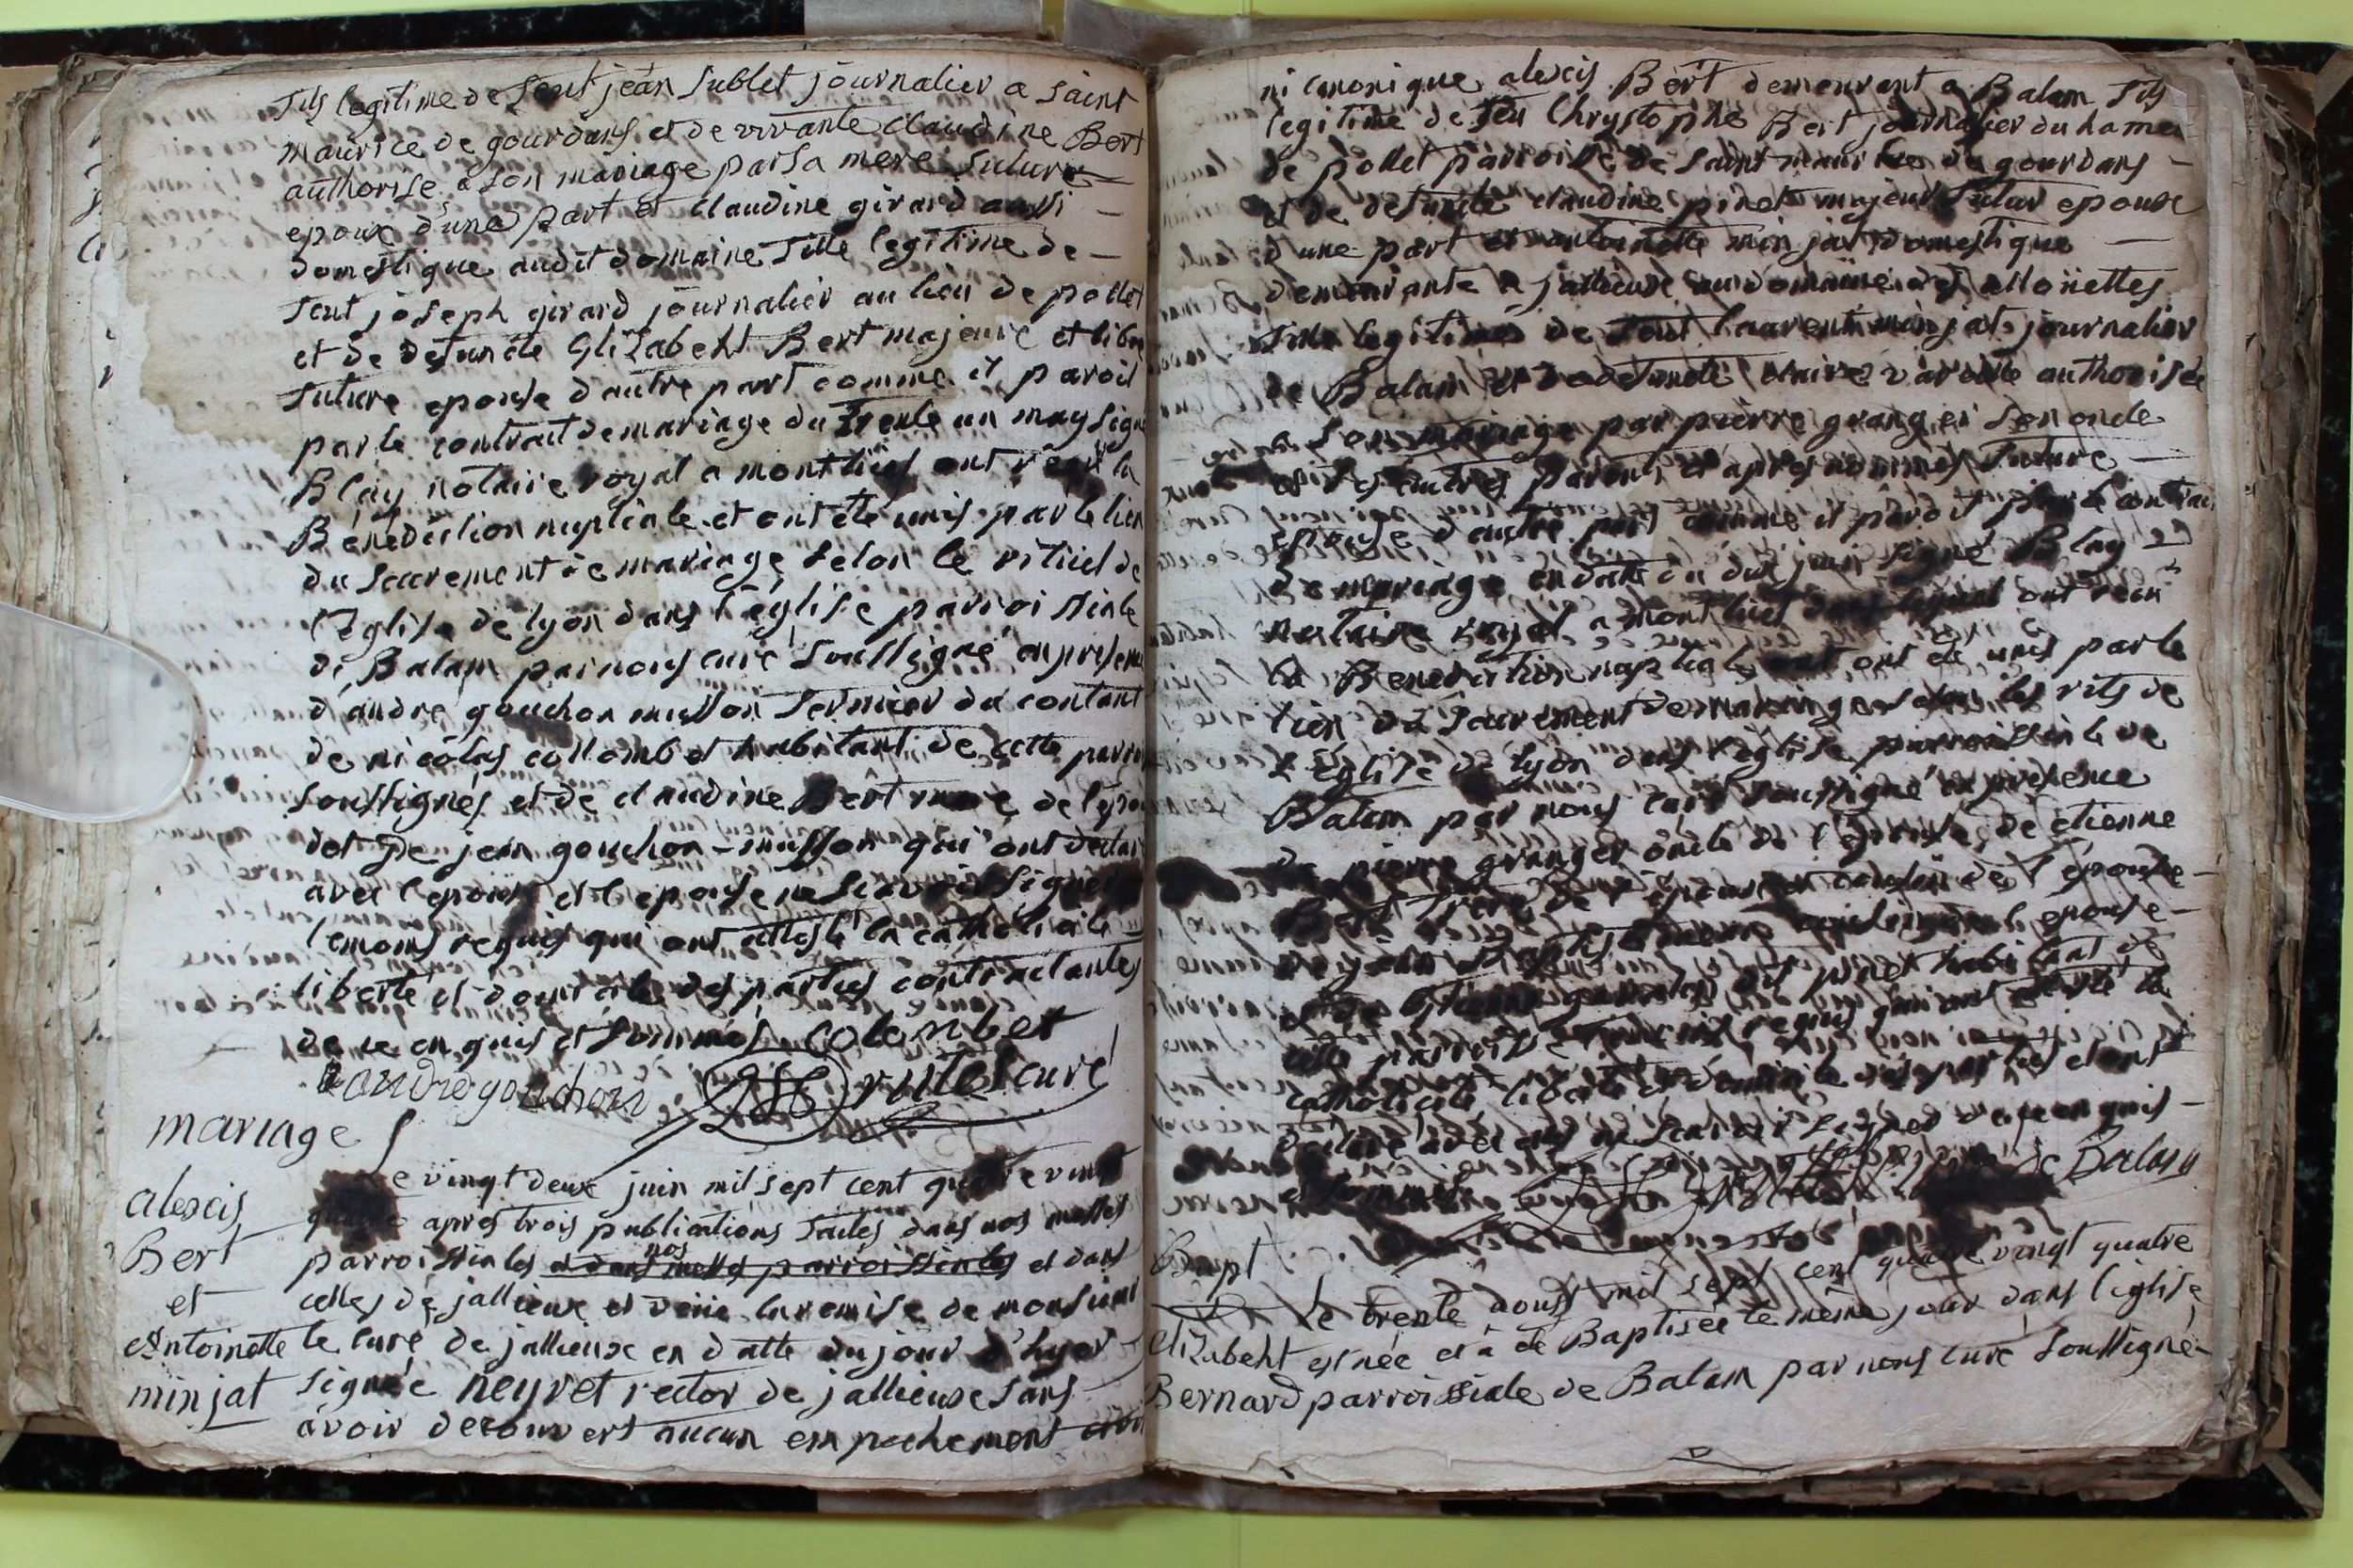 fils legitime de feut jean sublet journalier a saint
maurice de gourdans et de vivante claudine Bert
authorise a son mariage par sa mere future
epoux d'une part et claudine girard aussi
domestique audit domaine fille legitime de
feut joseph girard journalier au lieu de pollet
et de defuncte Elizabeht Bert majeure et libre
future epouse d'autre part comme il paroit
par le contrait de mariage du trente un may signé
Blay notaire royal a montluel ont reçu la
Bénédiction nuptiale et ont été unis par le lien
du sacrement de mariage selon le rituel de
l'Eglise de lyon dans l'église parroissiale
de Balam par nous curé soussigné en presence
d'andré gouchon musson fermier du contant
de nicolas collombet habitant de cette parroi
soussignés et de claudine Bert mere de l'epou
et de jean gouchon-musson qui ont declaré
avec l'epoux et l'epouse ne scavoir signer
temoins requis qui ont attesté la catholicité
liberté et domicile des parties contractantes
de ce enquis et sommés colombet
andre gouchon curé
mariage
alexis
Bert
et
Antoinette
minjat
e vingt deux juin mil sept cent quatre vingt
quatre apres trois publications faites dans nos messes
parroissiales et dans nos messes parroissiales et dans
celles de jallieux et veüe la remise de monsieur
le curé de jallieux en datte du jour d'hyer
signée neyret rector de jallieux sans
avoir decouvert aucun empechement civil
ni canonique alexis Bert demeurant a Balam fils
legitime de feu Chrystophe Bert journalier du hameau
de pollet parroisse de saint maurice de gourdans
et de defuncte claudine pinet majeur futur epoux
d'une part et antoinette minjat domestique
demeurante a jallieux au domaine des allouettes
fille legitime de feut laurent minjat journalier
de Balam et de defuncte claire authorisée
a son mariage par pierre granger son oncle
et ses autres parents ci apres nommés future
epouse d'autre part comme il paroit par le contrait
de mariage en datte du dix juin signé Blay
notaire royal a montluel ont reçu
la Benediction nuptiale et ont été unis par le
lien du sacrement de mariage selon les rits de
l'Eglise de lyon dans l'église parroissiale de
Balam par nous curé soussigné en presence
de pierre granger oncle de l'epouse, de etienne
Bert frere de l'epoux et cousin de l'epouse
de jean Baptiste de l'epouse
et de dit pinet habitant de
cette parroisse temoins requis qui ont attesté la
catholicité liberté et domicile des parties et ont
declaré avec eux ne scavoir signer de ce enquis
et sommés de Balam
Bapt
Le trente aoust mil sept cent quatre vingt quatre
elizabeht est née et a été Baptisée le même jour dans l'église
Bernard parroissiale de Balam par nous curé soussigné